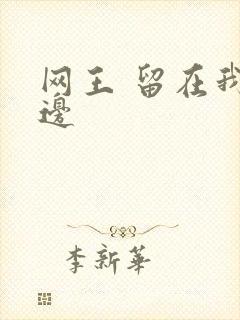 网王 留在我
邊
李新華